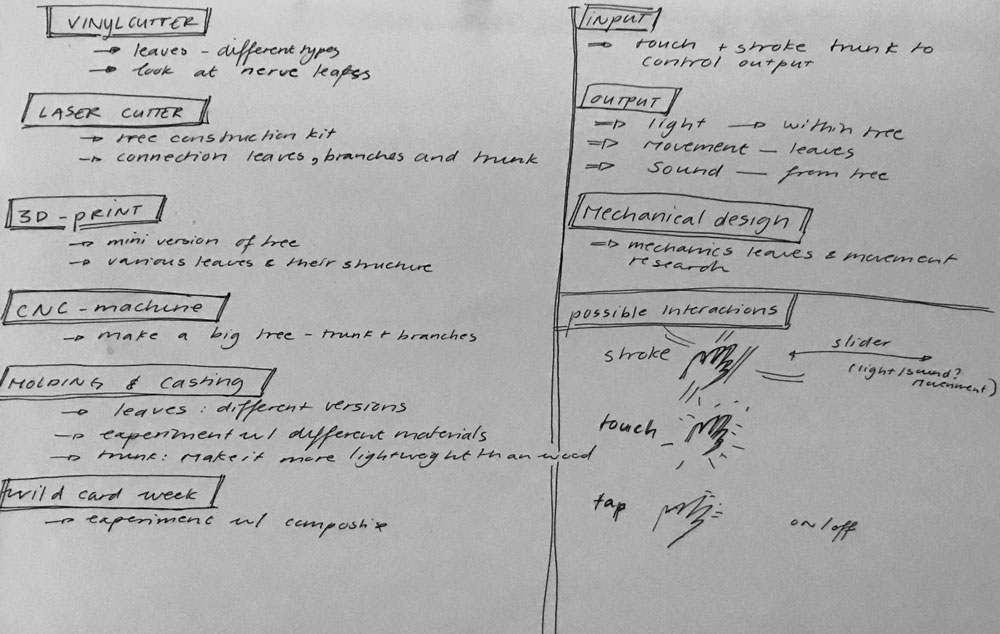 VINYLCUTTER
→ leaves - different types
→ look at nerve leafss
LASER CUTTER
→ tree construction kit
→ connection leaves, branches and trunk
3D-print
→ mini version of tree
→ various leaves & their structure
CNC-machine
→ make a big tree - trunk + branches
MOLDING & casting
→ leaves: different versions
→ experiment w/ different materials
→ trunk: make it more lightweght than wood
Wild card week
→ experiment w/
input
→ touch + stroke trunk to
control output
OUTPUT
⇒ light → within tree
⇒ Movement - leaves
⇒ Sound — from tree
Mechanical design
⇒ mechanics leaves & movement
research
possible interactions
stroke
slider
(light/sound?
Movement)
touch
tap
on/off